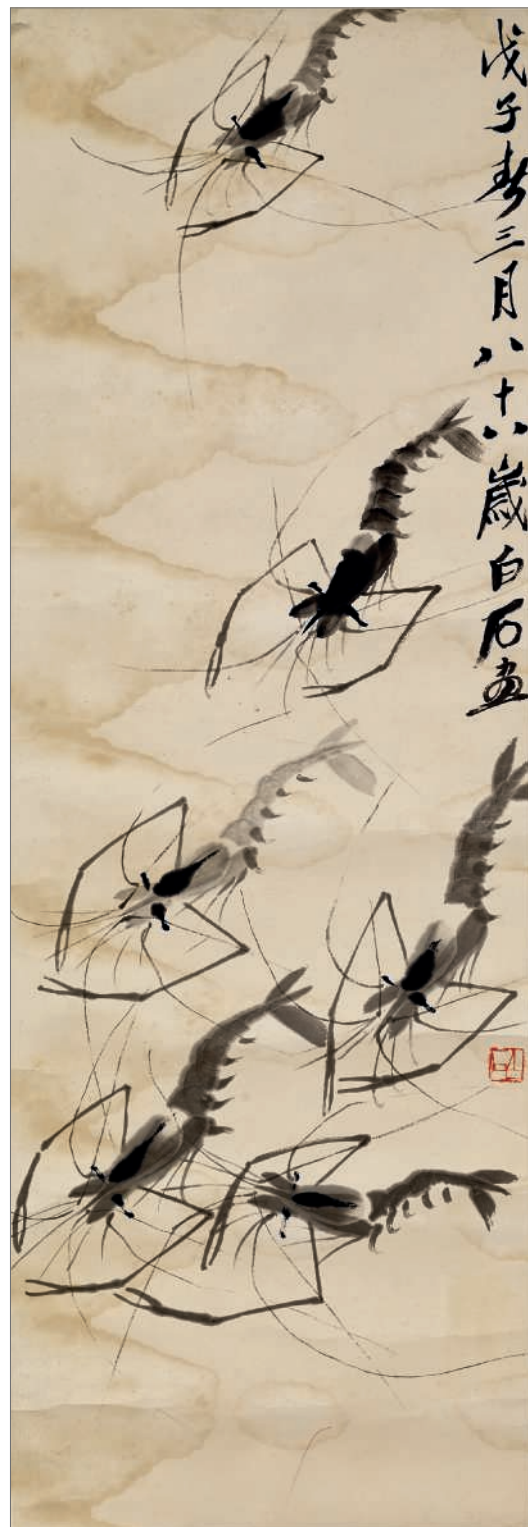 戊子春三月八十八歲白石畫